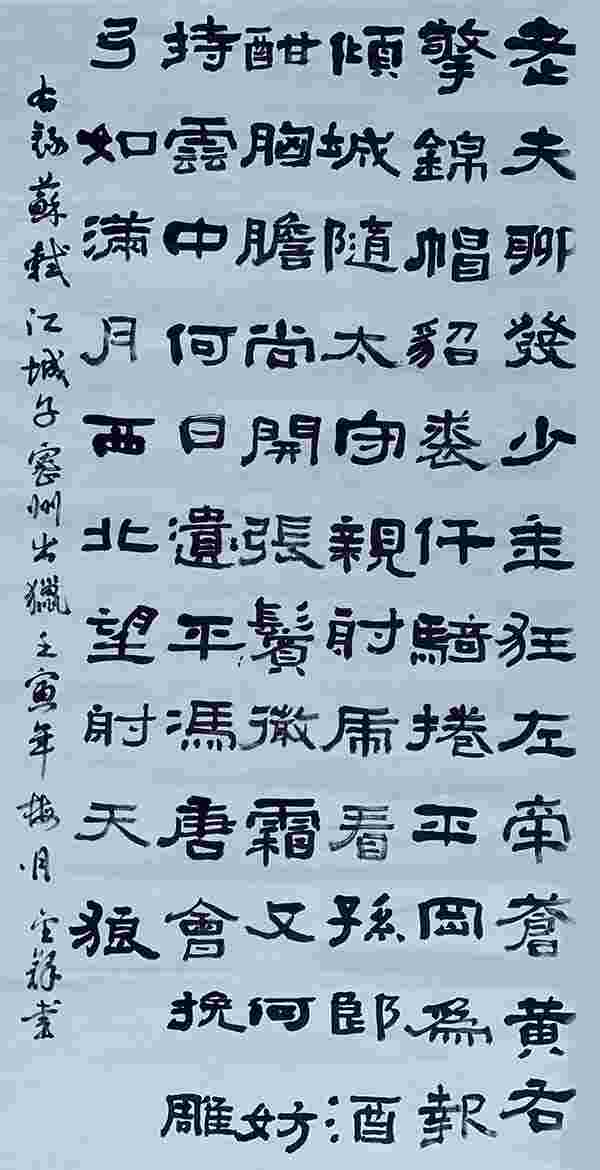 老夫聊發少年狂左牽蒼黄右
擎錦帽貂裘仟騎捲平岡爲報
傾城隨太守親射虎看孫郎酒
酣胸膽尚開張鬢微霜又何妨
持雲中何日遺平馮唐會挽雕
弓如滿月西北望射天狼
右錄蘇軾江城子密州出獵壬寅年梅月書